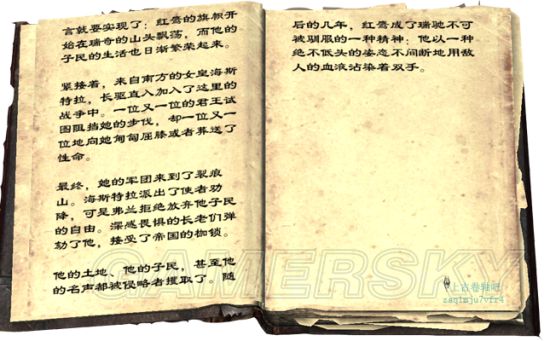 言就要实现了；红鹰的旗帜开
始在瑞奇的山头飘荡，而他的
子民的生活也日渐繁荣起来。
紧接着，来自南方的女皇海斯
特拉，长驱直入加入了这里的
战争中。一位又一位的君王试
图阻挡她的步伐，却一位又一
位地向她匍匐屈膝或者葬送了
性命。
最终，她的军团来到了裂痕
山。海斯特拉派出了使者劝
降，可是弗兰拒绝放弃他子民
的自由。深感畏惧的长老们弹
劾了他，接受了帝国的枷锁。
他的土地、他的子民，甚至他
的名声都被侵略者攫取了。随
后的几年，红鹰成了瑞驰不可
被驯服的一种精神；他以一种
绝不低头的姿态不间断地用敌
人的血液沾染着双手。
GAMERSKY
上古卷轴吧
zaq1mju7vfr4